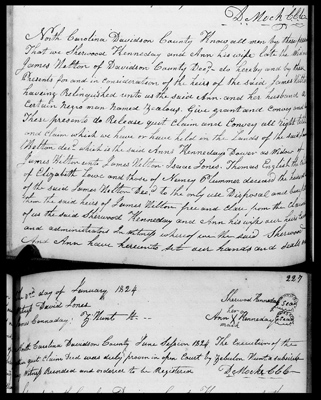 D. Mock CCC
North Carolina Davidson County Know all men by these presents
That we Sherwood Kenneday and Ann his wife late the Widow
James Welton of Davidson County Decd. do hereby and by these
Presents for and in Consideration of the heirs of the said James Welton
having Relinquished unto us the said Ann and her husband a
Certain Negro man named Zealous Give grant and Convey and
These presents do Release quit Claim and Convey all right title
and claim which we have or have held in the Lands of the said James
Welton decd. which is the said Ann Kennedays Dower as Widow of
James Welton unto James Welton Isaac Jones. Thomas English the
of Elizabeth Love and those of Nancy Plummer deceasd the heirs
of the said James Welton Decd. to the only use Disposal and
them the said heirs of James Welton free and clear from the Claim
of us the said Sherwood Kenneday and Ann his wife our heirs
and administrators In Witness whereof we the said Sherwood
And Ann have hereunto set our hands and seals
227
day of January 1824
David Jones
Z Hunt
Sherwood Kenneday Seal
her
Ann X Kenneday Seal
mark
North Carolina Davidson County June Session 1824 The Execution of the
quit Claim Deed was duly proven in open Court by Zebulon Hunt a subscribing
Recorded and ordered to be Registered
D Mock CCC